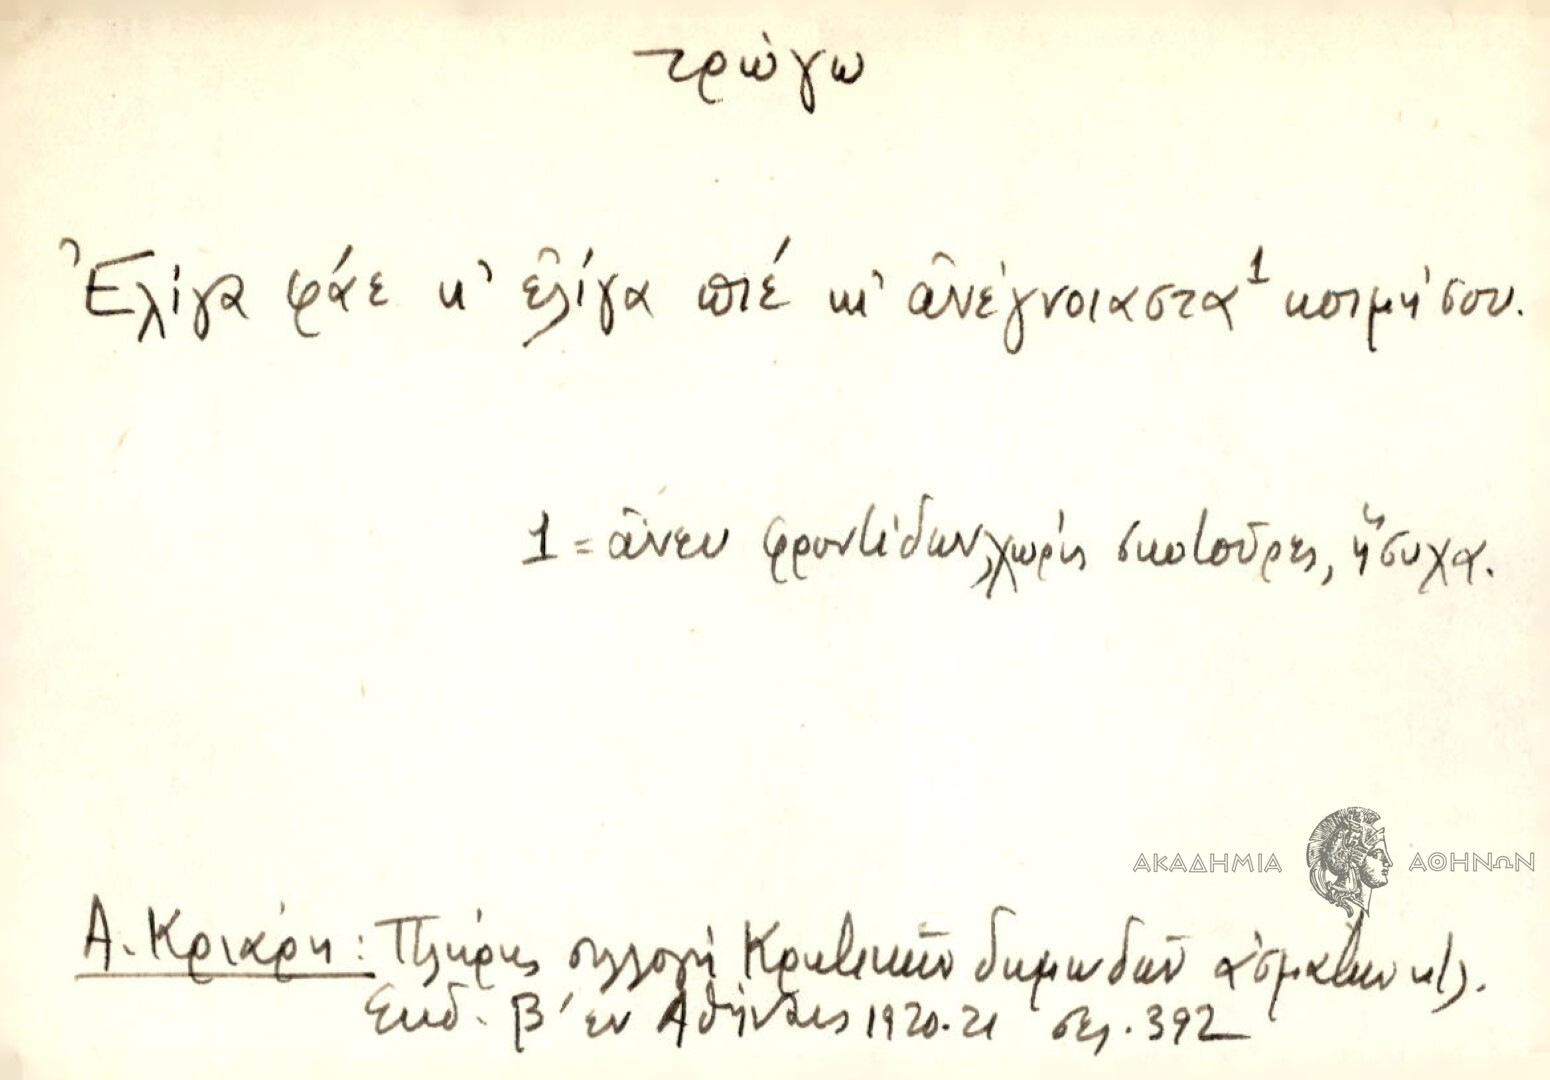 τρώγω
Ἐλίγα φάε κ' ἐλίγα πιέ κι' ἀνέγνοιαστα¹ κοιμήσου.
1 = ἄνευ φροντίδων, χωρίς σκοτοῦρες, ἥσυχα.
ΑΚΑΔΗΜΙΑ ΑΘΗΝΩΝ
Α. Κριάρη: Πλήρης συλλογή Κρητικῶν δημωδῶν ἀσμάτων κτλ.
Ἐκδ. Β' ἐν Ἀθήναις 1920-21 σελ. 392